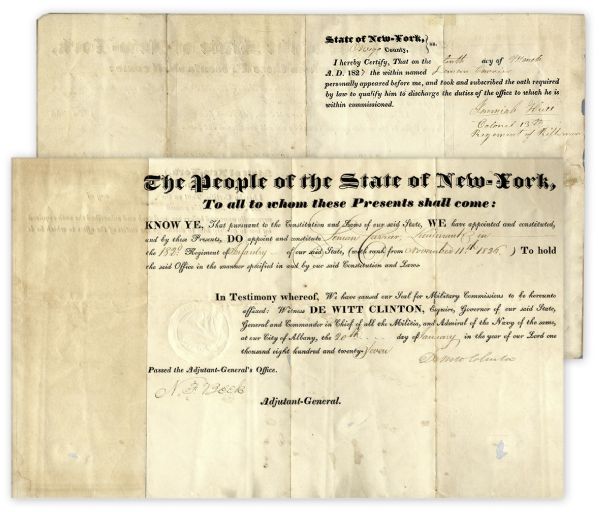 State of New-York, } ss.
County,
I hereby Certify, That on the tenth day of March
A. D. 1827 the within named
personally appeared before me, and took and subscribed the oath required
by law to qualify him to discharge the duties of the office to which he is
within commissioned.
Colonel 13th
Regiment of Riflemen
The People of the State of New-York,
To all to whom these Presents shall come:
KNOW YE, That pursuant to the Constitution and Laws of our said State, WE have appointed and constituted,
and by this Presents, DO appoint and constitute Lieutenant in
the 182d Regiment of Infantry of our said State, (with rank from November 11th 1826,) To hold
the said Office in the manner specified in and by our said Constitution and Laws.
In Testimony whereof, We have caused our Seal for Military Commissions to be hereunto
affixed: Witness DE WITT CLINTON, Esquire, Governor of our said State,
General and Commander in Chief of all the Militia, and Admiral of the Navy of the same,
at our City of Albany, the 20th day of January in the year of our Lord one
thousand eight hundred and twenty-seven
DeWitt Clinton
Passed the Adjutant-General's Office.
N. F. Beck
Adjutant-General.